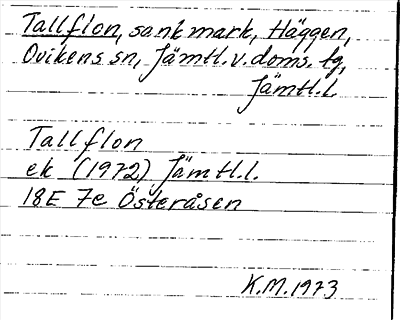 Tallflon, sank mark, Häggen,
Ovikens sn, Jämtl. v. doms. tg,
Jämtl. l.
Tallflon
ek (1972) Jämtl. l.
18E 7e Österåsen
K.M. 1973